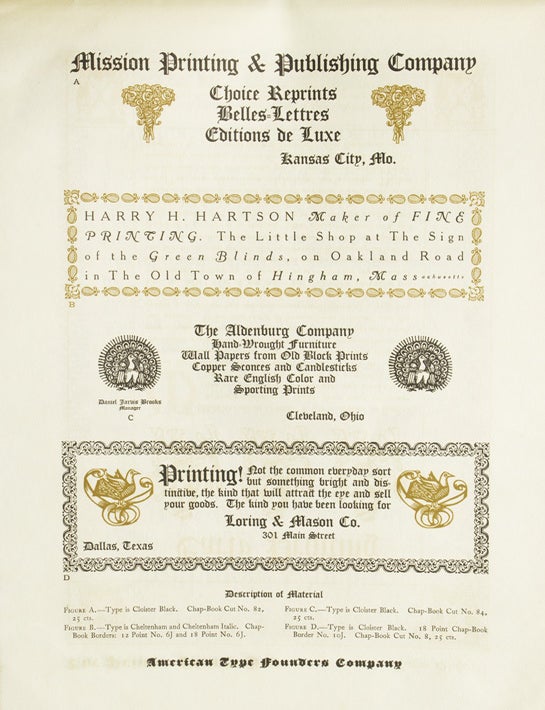 Mission Printing & Publishing Company
A
Choice Reprints
Belles-Lettres
Editions de Luxe
Kansas City, Mo.
HARRY H. HARTSON Maker of FINE
PRINTING. The Little Shop at The Sign
of the Green Blinds, on Oakland Road
in The Old Town of Hingham, Massachusetts
B
The Aldenburg Company
Hand-Wrought Furniture
Wall Papers from Old Block Prints
Copper Sconces and Candlesticks
Rare English Color and
Sporting Prints
Daniel Jarvis Brooks
Manager
C
Cleveland, Ohio
Printing! Not the common everyday sort
but something bright and dis-
tinctive, the kind that will attract the eye and sell
your goods. The kind you have been looking for
Loring & Mason Co.
301 Main Street
Dallas, Texas
D
Description of Material
Figure A.—Type is Cloister Black. Chap-Book Cut No. 82,
25 cts.
Figure B.—Type is Cheltenham and Cheltenham Italic. Chap-
Book Borders: 12 Point No. 6J and 18 Point No. 6J.
Figure C.—Type is Cloister Black. Chap-Book Cut No. 84,
25 cts.
Figure D.—Type is Cloister Black. 18 Point Chap-Book
Border No. 10J. Chap-Book Cut No. 8, 25 cts.
American Type Founders Company